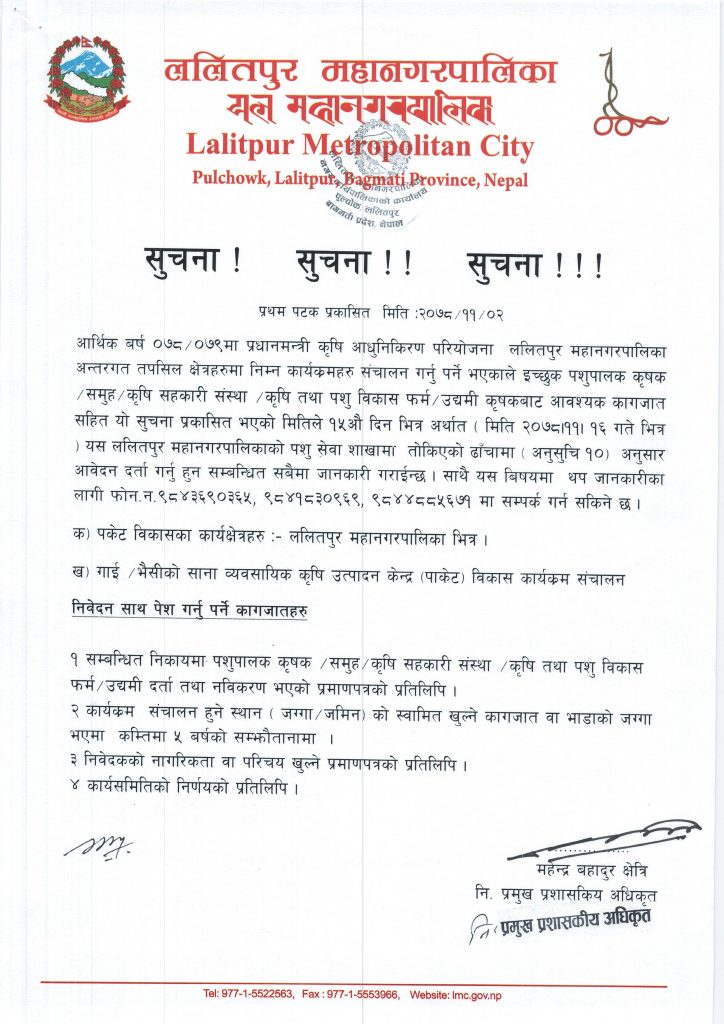 ललितपुर महानगरपालिका
Lalitpur Metropolitan City
Pulchowk, Lalitpur, Bagmati Province, Nepal
ललितपुर महानगरपालिका
नगर कार्यपालिकाको कार्यालय
पुल्चोक, ललितपुर
बागमती प्रदेश, नेपाल
सुचना ! सुचना ! ! सुचना ! ! !
प्रथम पटक प्रकासित मिति :२०७८/११/०२
आर्थिक बर्ष ०७८/०७९मा प्रधानमन्त्री कृषि आधुनिकिरण परियोजना ललितपुर महानगरपालिका
अन्तरगत तपसिल क्षेत्रहरुमा निम्न कार्यक्रमहरु संचालन गर्नु पर्ने भएकाले इच्छुक पशुपालक कृषक
/समुह/कृषि सहकारी संस्था /कृषि तथा पशु विकास फर्म/उद्यमी कृषकबाट आवश्यक कागजात
सहित यो सुचना प्रकासित भएको मितिले १५औ दिन भित्र अर्थात ( मिति २०७८।११। १६ गते भित्र
) यस ललितपुर महानगरपालिकाको पशु सेवा शाखामा तोकिएको ढाँचामा ( अनुसुचि १०) अनुसार
आवेदन दर्ता गर्नु हुन सम्बन्धित सबैमा जानकारी गराईन्छ । साथै यस बिषयमा थप जानकारीका
लागी फोन.न.९८४३६९०३६५, ९८४१८३०९६९, ९८४४८८५६७१ मा सम्पर्क गर्न सकिने छ ।
क) पकेट विकासका कार्यक्षेत्रहरु :- ललितपुर महानगरपालिका भित्र ।
ख) गाई /भैसीको साना व्यवसायिक कृषि उत्पादन केन्द्र (पाकेट) विकास कार्यक्रम संचालन
निवेदन साथ पेश गर्नु पर्ने कागजातहरु
१ सम्बन्धित निकायमा पशुपालक कृषक /समुह/कृषि सहकारी संस्था /कृषि तथा पशु विकास
फर्म/उद्यमी दर्ता तथा नविकरण भएको प्रमाणपत्रको प्रतिलिपि ।
२ कार्यक्रम संचालन हुने स्थान ( जग्गा/जमिन) को स्वामित खुल्ने कागजात वा भाडाको जग्गा
भएमा कम्तिमा ५ बर्षको सम्झौतानामा ।
३ निवेदकको नागरिकता वा परिचय खुल्ने प्रमाणपत्रको प्रतिलिपि ।
४ कार्यसमितिको निर्णयको प्रतिलिपि ।
महेन्द्र बहादुर क्षेत्रि
नि. प्रमुख प्रशासकिय अधिकृत
नि. प्रमुख प्रशासकीय अधिकृत
Tel: 977-1-5522563, Fax : 977-1-5553966, Website: lmc.gov.np